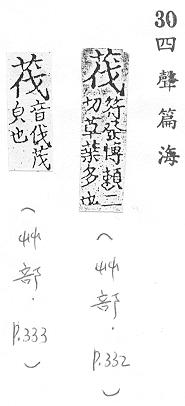 30 四聲篇海
茷符發博賴二切草葉多也
(艸部.P.332)
茷音伐茂皃也
(艸部.P.333)